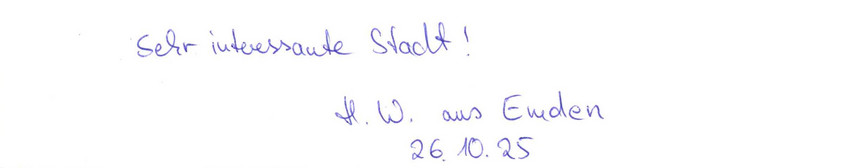 Sehr interessante Stadt!
H. W. aus Emden
26.10.25